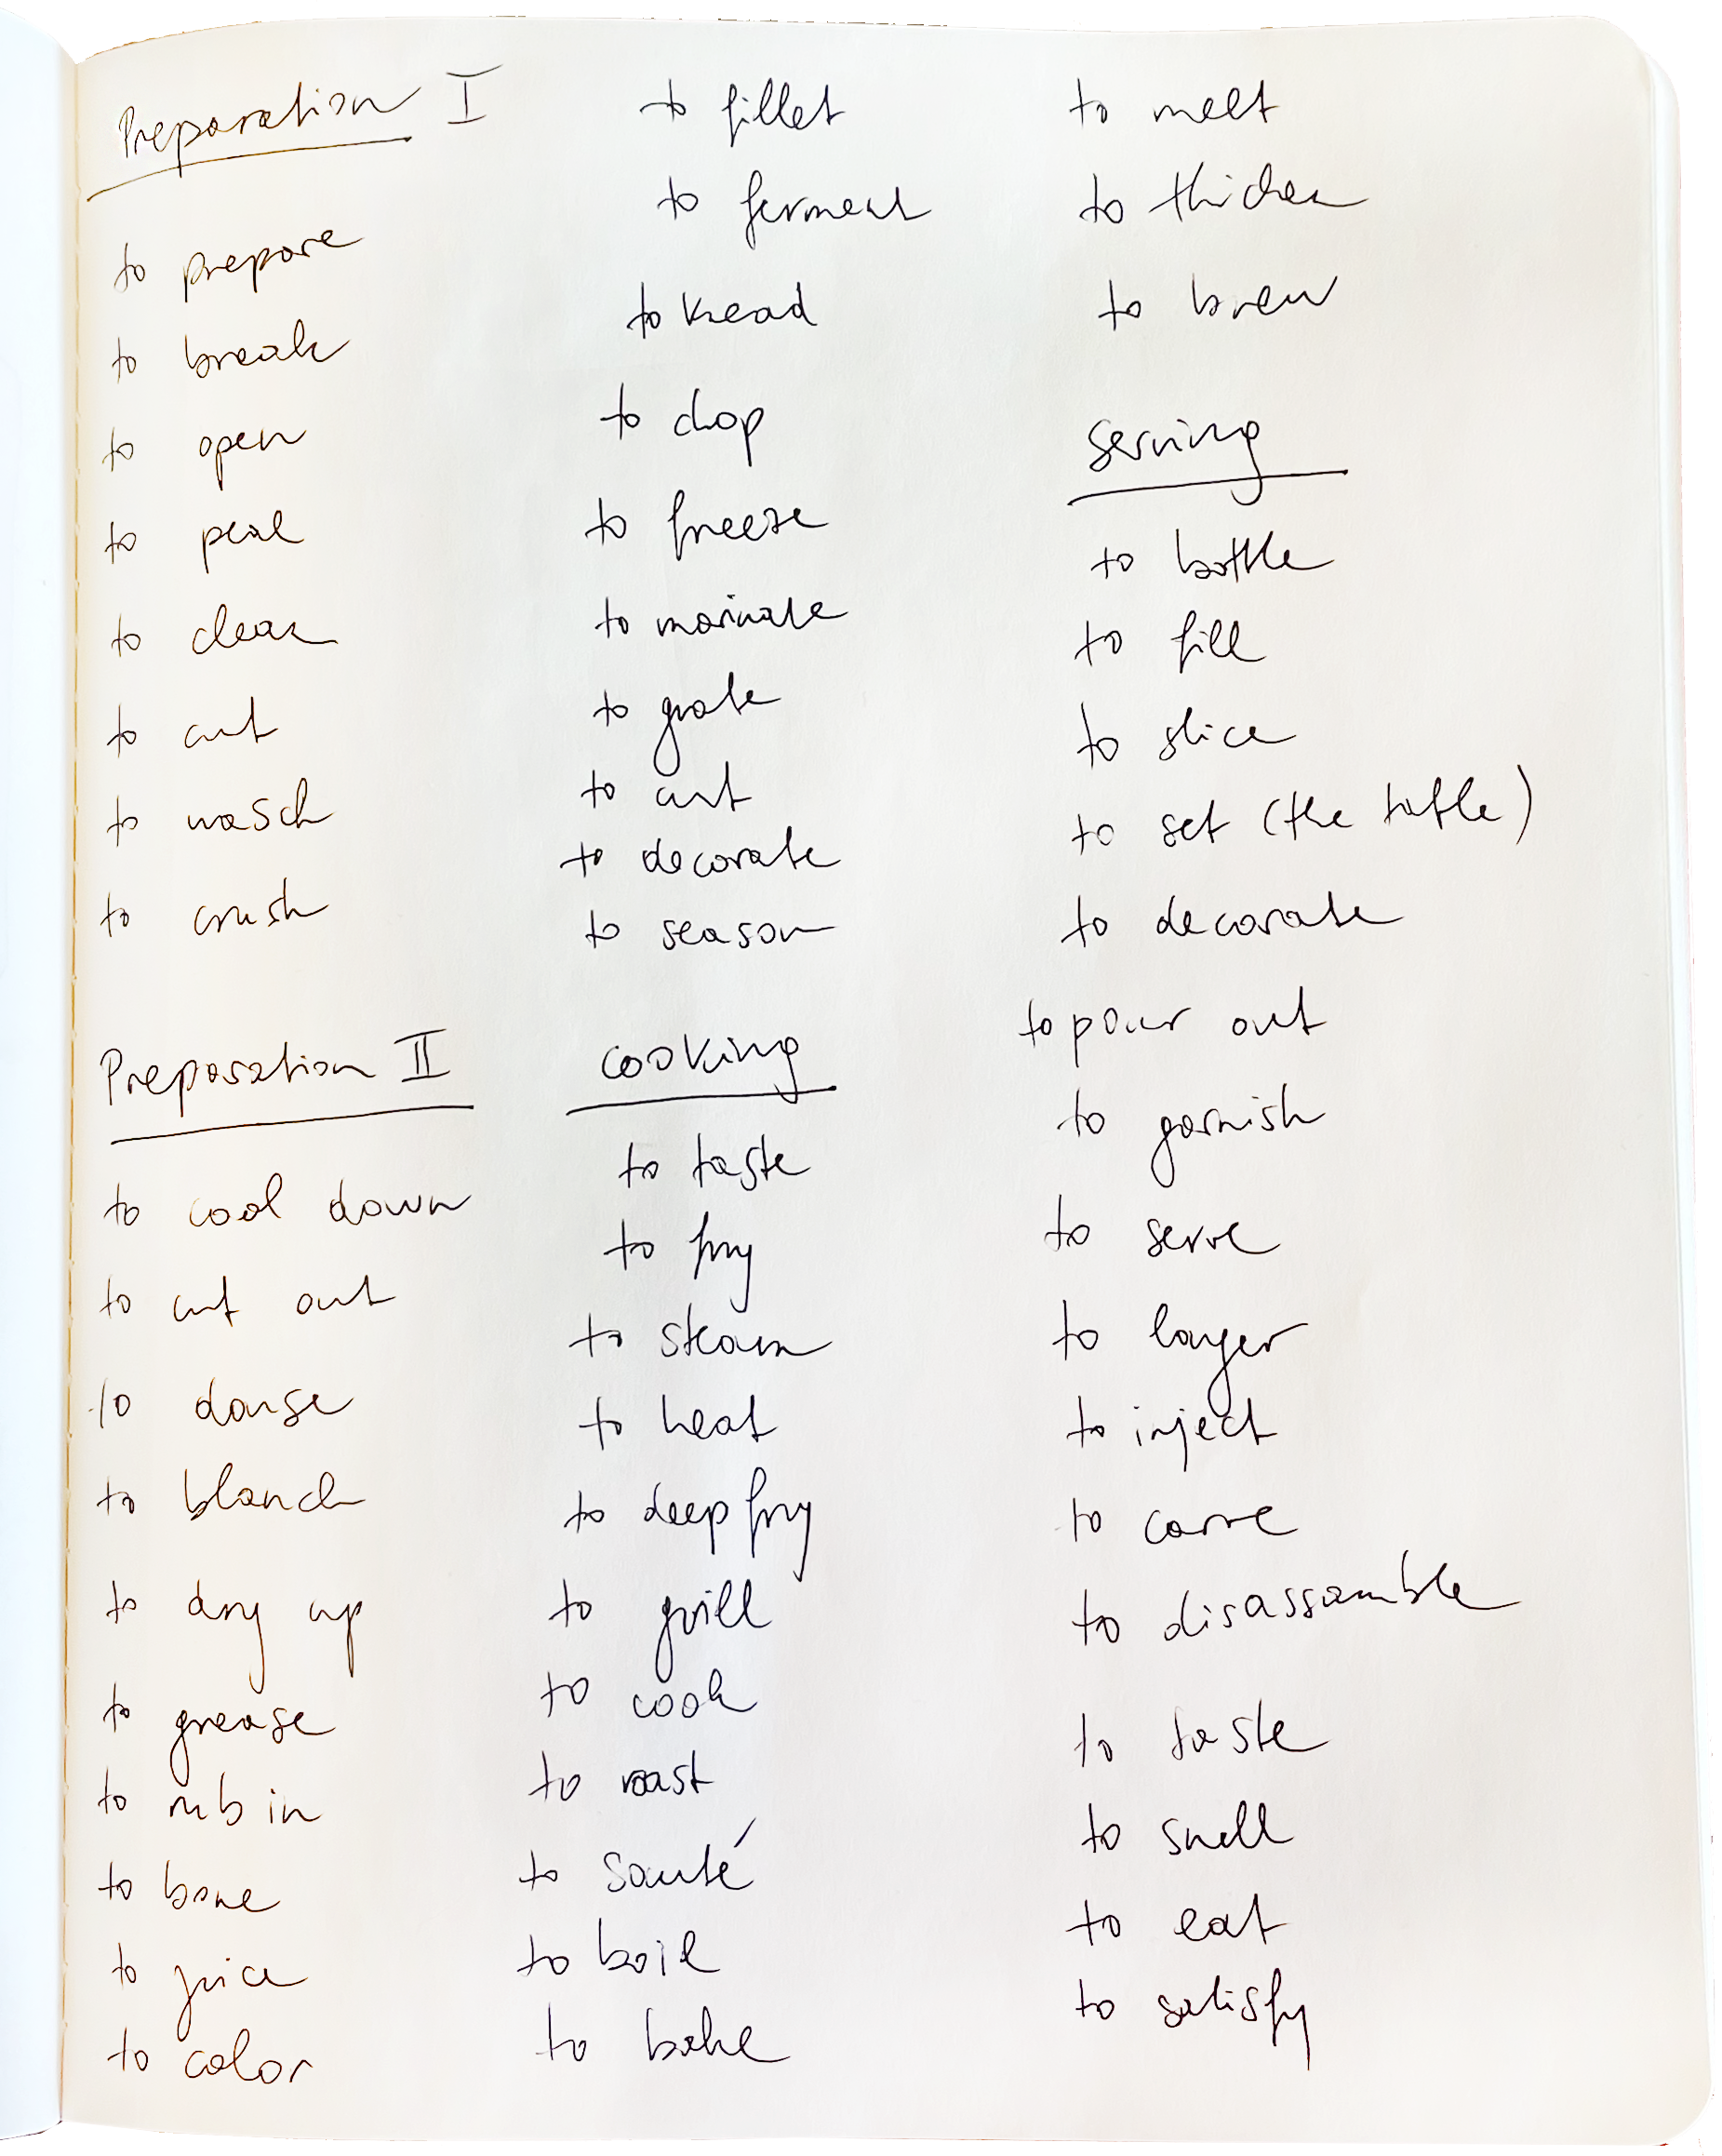 Preparation I
to prepare
to break
to open
to peal
to clean
to cut
to wasch
to crush
Preparation II
to cool down
to cut out
to douse
to blanch
to dry up
to grease
to rub in
to bone
to juice
to color
to fillet
to ferment
to knead
to chop
to freeze
to marinate
to grate
to cut
to decorate
to season
cooking
to taste
to fry
to steam
to heat
to deep fry
to grill
to cook
to roast
to sauté
to boil
to bake
to melt
to thicken
to brew
serving
to bottle
to fill
to slice
to set (the table)
to decorate
to pour out
to garnish
to serve
to layer
to inject
to carve
to disassamble
to taste
to smell
to eat
to satisfy